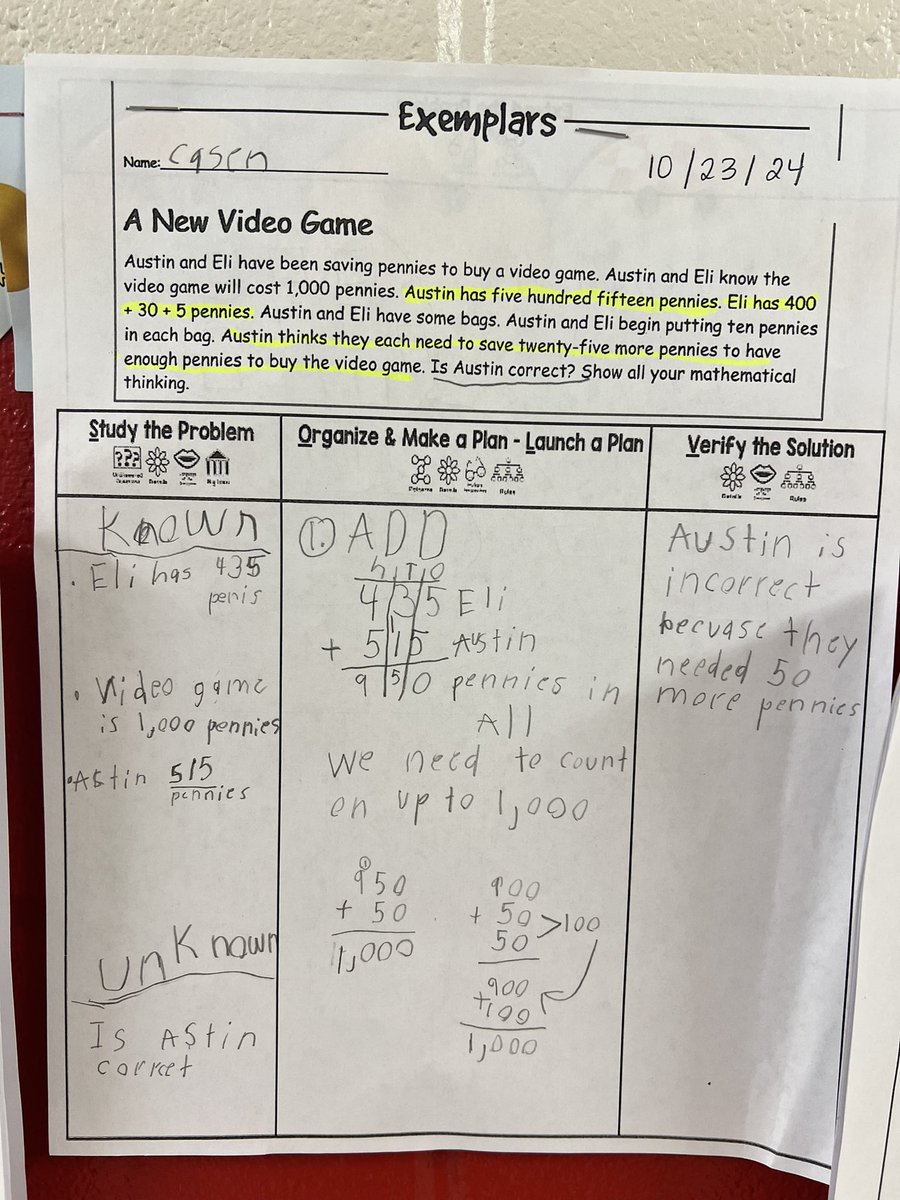 Exemplars
Name: Casen
10/23/24
A New Video Game
Austin and Eli have been saving pennies to buy a video game. Austin and Eli know the
video game will cost 1,000 pennies. Austin has five hundred fifteen pennies. Eli has 400
+ 30 + 5 pennies. Austin and Eli have some bags. Austin and Eli begin putting ten pennies
in each bag. Austin thinks they each need to save twenty-five more pennies to have
enough pennies to buy the video game. Is Austin correct? Show all your mathematical
thinking.
Study the Problem
???
Details
Known
• Eli has 435
penis
• Video game
is 1,000 pennies
• Astin 515
pennies
unKnown
Is Astin
corret
Organize & Make a Plan - Launch a Plan
Patterns Details Rules
1. ADD
h T O
4 3 5 Eli
+ 5 1 5 Austin
9 5 0 pennies in
All
We need to count
on up to 1,000
1
950
+ 50
1,000
900
+ 50 >100
50
900
+100
1,000
Verify the Solution
Details Rules
Austin is
incorrect
becuase they
needed 50
more pennies